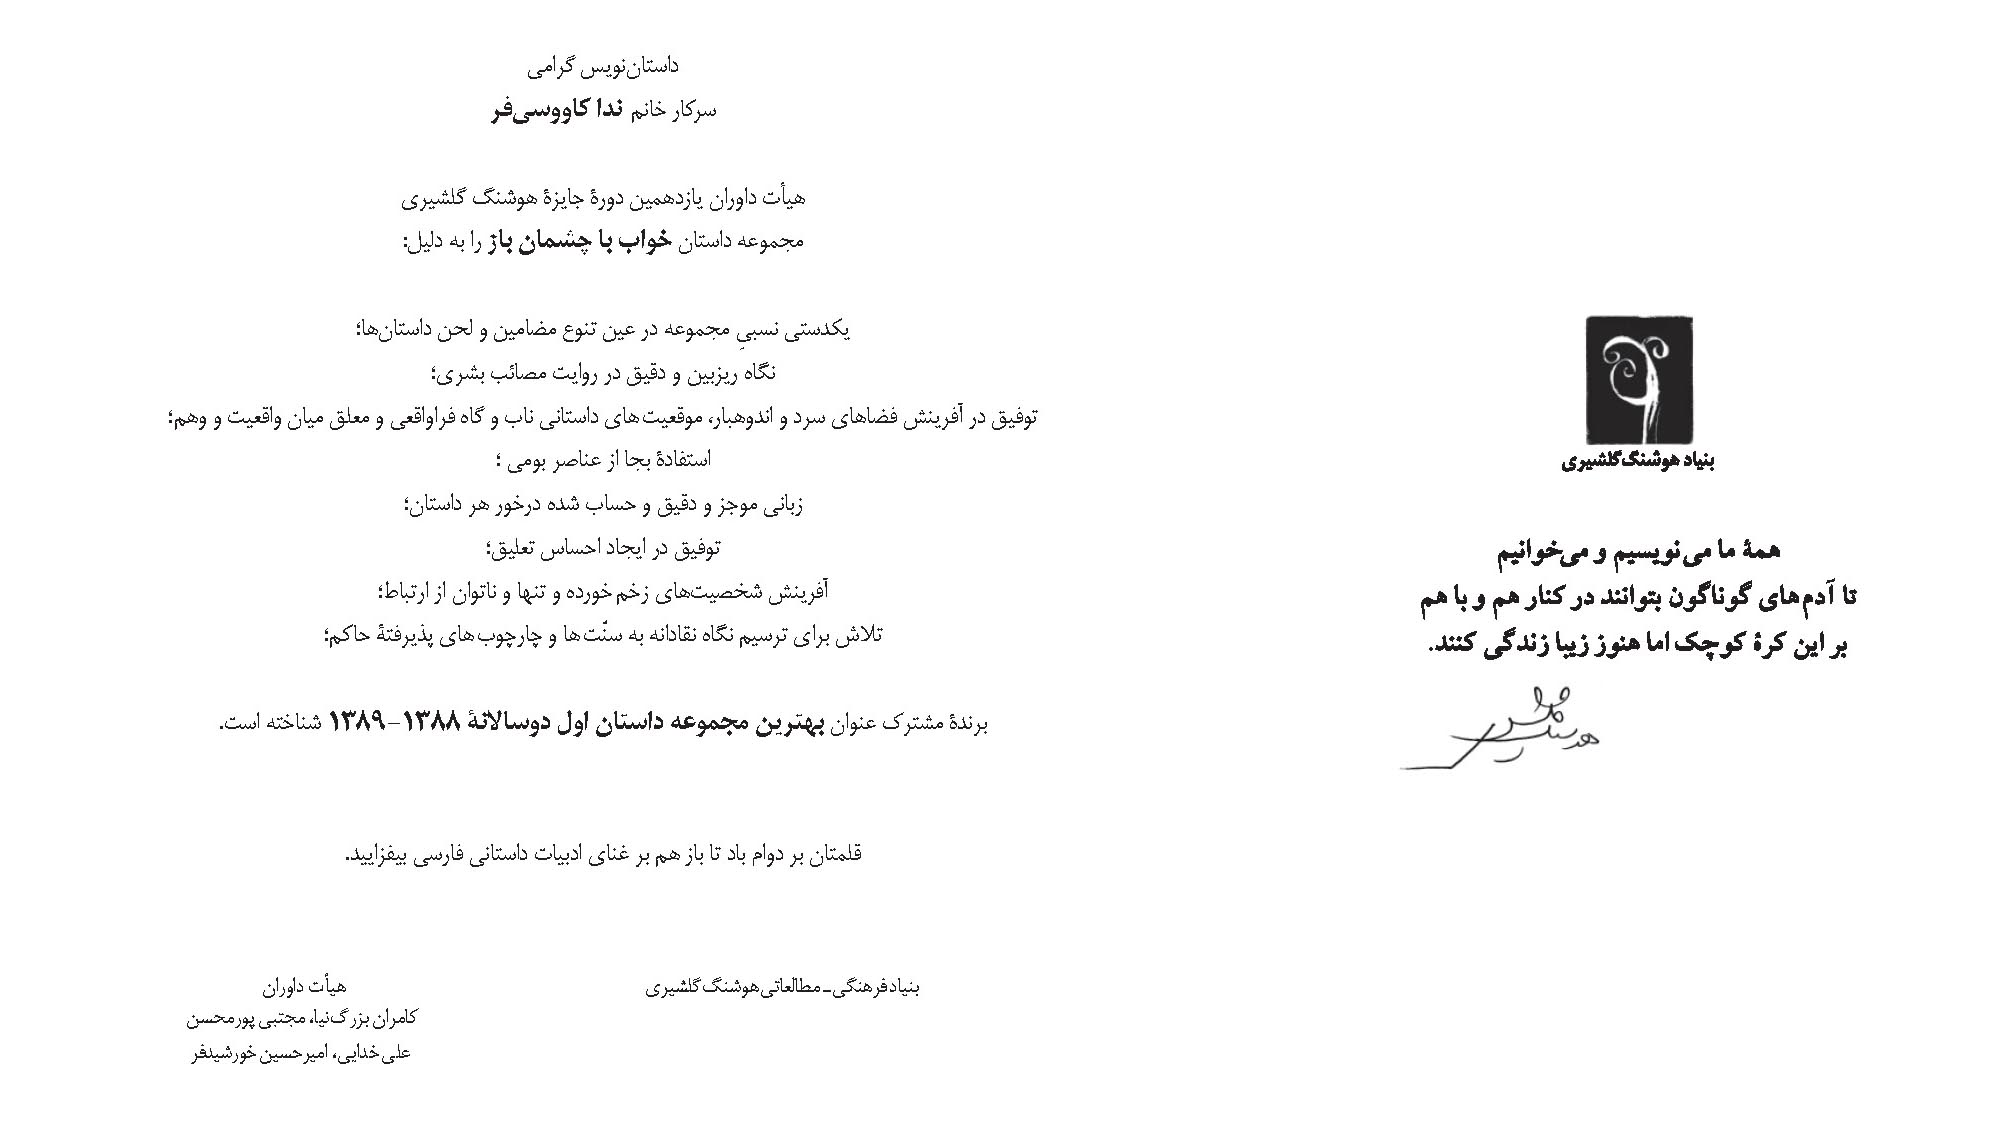 بنیاد هوشنگ گلشیری
همهٔ ما می‌نویسیم و می‌خوانیم
تا آدم‌های گوناگون بتوانند در کنار هم و با هم
بر این کرهٔ کوچک اما هنوز زیبا زندگی کنند.
داستان‌نویس گرامی
سرکار خانم ندا کاووسی‌فر
هیأت داوران یازدهمین دورهٔ جایزهٔ هوشنگ گلشیری
مجموعه داستان خواب با چشمان باز را به دلیل:
یکدستی نسبیِ مجموعه در عین تنوع مضامین و لحن داستان‌ها؛
نگاه ریزبین و دقیق در روایت مصائب بشری؛
توفیق در آفرینش فضاهای سرد و اندوهبار، موقعیت‌های داستانی ناب و گاه فراواقعی و معلق میان واقعیت و وهم؛
استفادهٔ بجا از عناصر بومی ؛
زبانی موجز و دقیق و حساب شده درخور هر داستان؛
توفیق در ایجاد احساس تعلیق؛
آفرینش شخصیت‌های زخم‌خورده و تنها و ناتوان از ارتباط؛
تلاش برای ترسیم نگاه نقادانه به سنّت‌ها و چارچوب‌های پذیرفتهٔ حاکم؛
برندهٔ مشترک عنوان بهترین مجموعه داستان اول دوسالانهٔ ۱۳۸۸-۱۳۸۹ شناخته است.
قلمتان بر دوام باد تا باز هم بر غنای ادبیات داستانی فارسی بیفزایید.
بنیاد فرهنگی ـ مطالعاتی هوشنگ گلشیری
هیأت داوران
کامران بزرگ‌نیا، مجتبی پورمحسن
علی خدایی، امیرحسین خورشیدفر